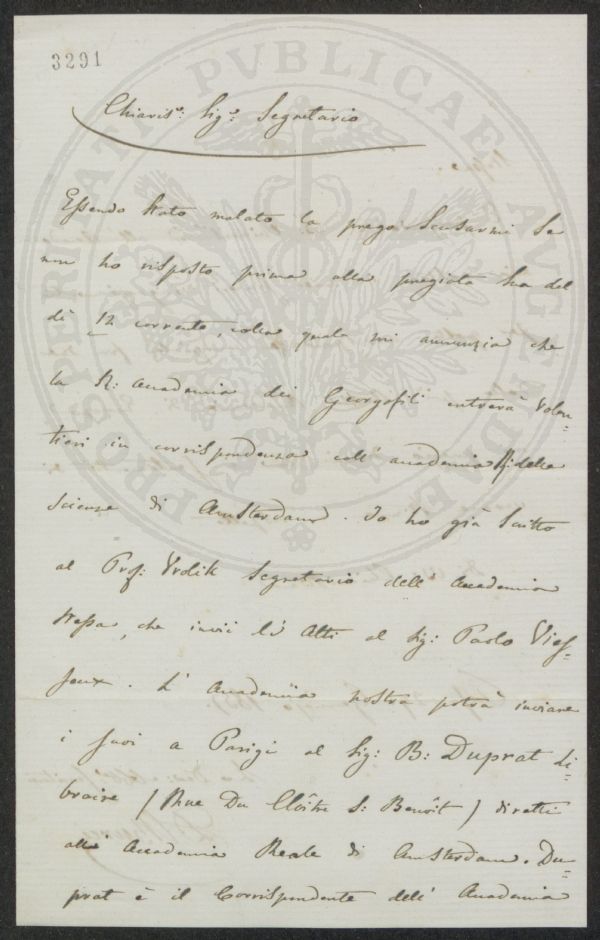 3291
PROSPERITATI PVBLICAE AVGENDAE
Chiaris.º: Sig.º: Segretario
Essendo stato malato la prego scusarmi se
non ho risposto prima alla pregiata sua del
dì 12 corrente, colla quale mi annunzia che
la R: Accademia dei Georgofili entrerà volen=
tieri in corrispondenza coll' accademia delle
Scienze di Amsterdam. Io ho già scritto
al Prof: Vrolik Segretario dell Accademia
stessa, che invii li Atti al Sig: Paolo Vies=
seux. L' Accademia nostra potrà inviare
i suoi a Parigi al Sig: B: Duprat Li=
braire (Rue Du Cloître S: Benoît) diretti
alla Accademia Reale di Amsterdam. Du=
prat è il Corrispondente dell' Accademia